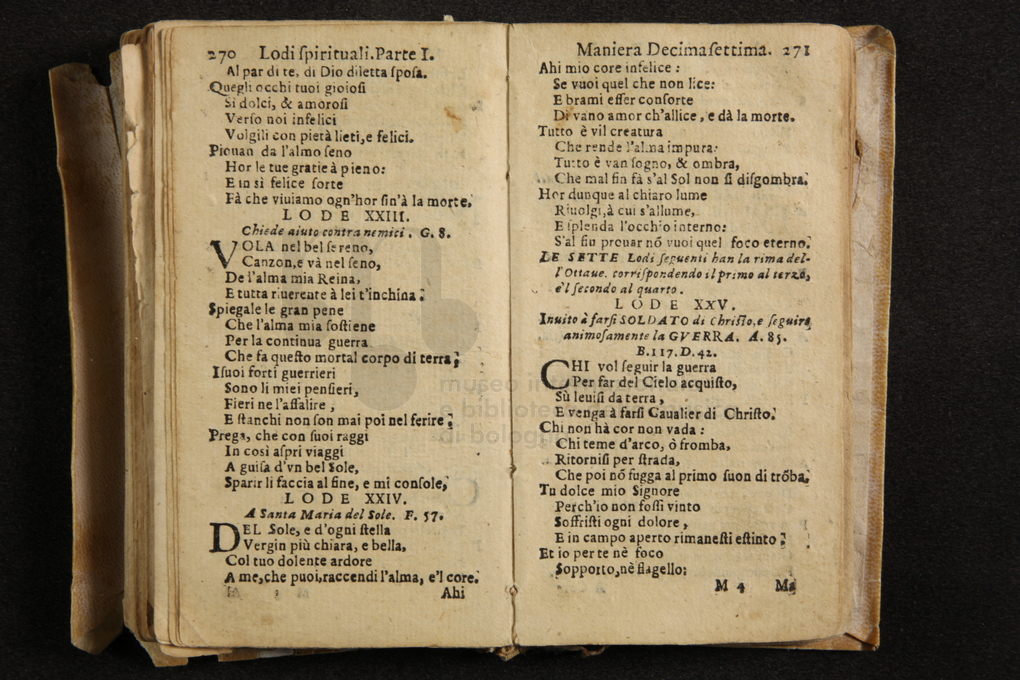 270 Lodi ſpirituali. Parte I.
Al par di te, di Dio diletta ſpoſa.
Quegli occhi tuoi gioioſi
Si dolci, & amoroſi
Verſo noi infelici
Volgili con pietà lieti, e felici.
Piouan da l'almo ſeno
Hor le tue gratie à pieno:
E in sì felice ſorte
Fà che viuiamo ogn'hor ſin'à la morte.
LODE XXIII.
Chiede aiuto contra nemici. G. 8.
VOLA nel bel ſereno,
Canzon, e và nel ſeno,
De l'alma mia Reina,
E tutta riuerente à lei t'inchina:
Spiegale le gran pene
Che l'alma mia ſoſtiene
Per la continua guerra
Che fa queſto mortal corpo di terra;
I ſuoi forti guerrieri
Sono li miei penſieri,
Fieri ne l'aſſalire,
E ſtanchi non ſon mai poi nel ferire;
Prega, che con ſuoi raggi
In così aſpri viaggi
A guiſa d'vn bel Sole,
Sparir li faccia al fine, e mi conſole,
LODE XXIV.
A Santa Maria del Sole. F. 57.
DEL Sole, e d'ogni ſtella
Vergin più chiara, e bella,
Col tuo dolente ardore
A me, che puoi, raccendi l'alma, e'l core.
Ahi
Maniera Decimaſettima. 271
Ahi mio core infelice:
Se vuoi quel che non lice:
E brami eſſer conſorte
Di vano amor ch'allice, e dà la morte.
Tutto è vil creatura
Che rende l'alma impura:
Tutto è van ſogno, & ombra,
Che mal fin fà s'al Sol non ſi diſgombra.
Hor dunque al chiaro lume
Riuolgi, à cui s'allume,
E ſplenda l'occhio interno:
S'al fin prouar nõ vuoi quel foco eterno.
LE SETTE Lodi ſeguenti han la rima del-
l'Ottaue. corriſpondendo il primo al terzo,
e'l ſecondo al quarto.
LODE XXV.
Inuito à farſi SOLDATO di Chriſto, e ſeguire
animoſamente la GVERRA. A. 85.
B. 117. D. 42.
CHI vol ſeguir la guerra
Per far del Cielo acquiſto,
Sù leuiſi da terra,
E venga à farſi Caualier di Chriſto.
Chi non hà cor non vada:
Chi teme d'arco, ò fromba,
Ritorniſi per ſtrada,
Che poi nõ fugga al primo ſuon di trõba.
Tu dolce mio Signore
Perch'io non foſſi vinto
Soffriſti ogni dolore,
E in campo aperto rimaneſti eſtinto;
Et io per te nè foco
Sopporto, nè flagello:
M 4 Ma